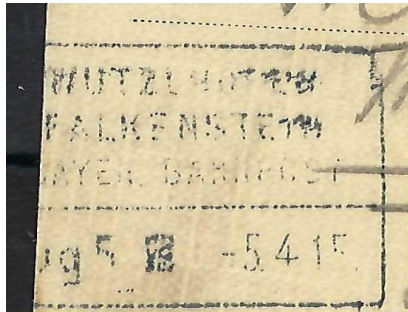 WUTZLHOFEN
FALKENSTEIN
BAYER. BAHNPOST
ug 5 -5.4.15.